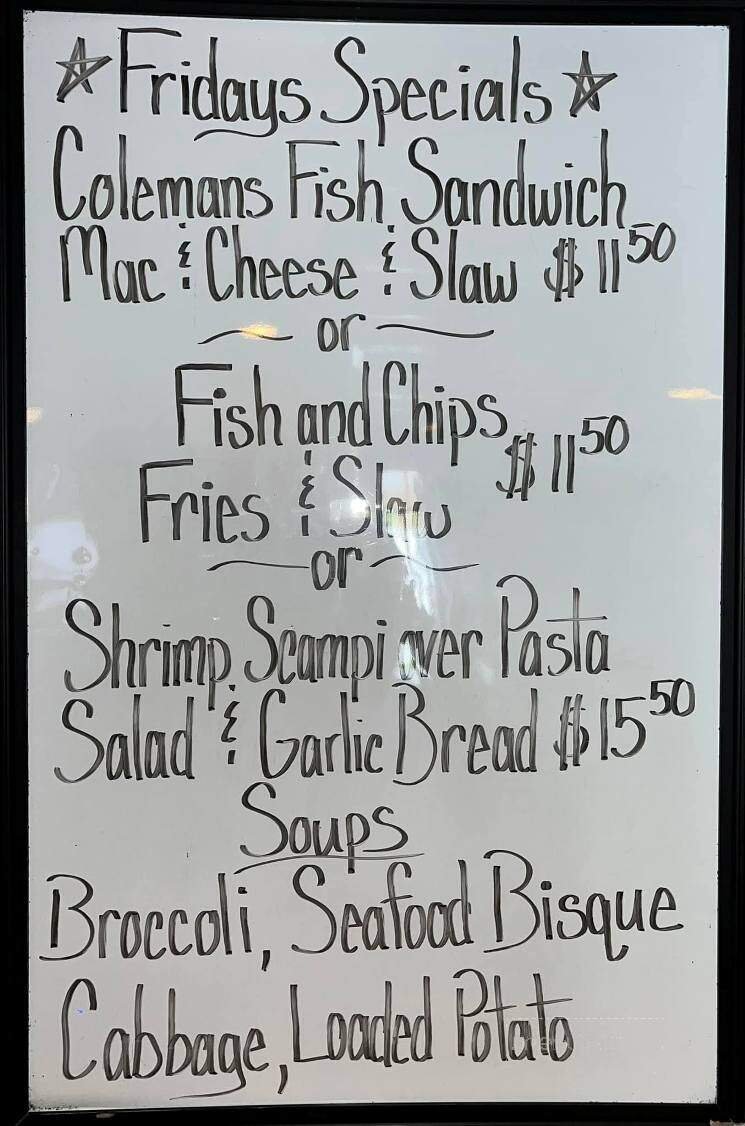 ☆ Fridays Specials ☆
Colemans Fish Sandwich
Mac & Cheese & Slaw $11.50
or
Fish and Chips $11.50
Fries & Slaw
or
Shrimp Scampi over Pasta
Salad & Garlic Bread $15.50
Soups
Broccoli, Seafood Bisque
Cabbage, Loaded Potato